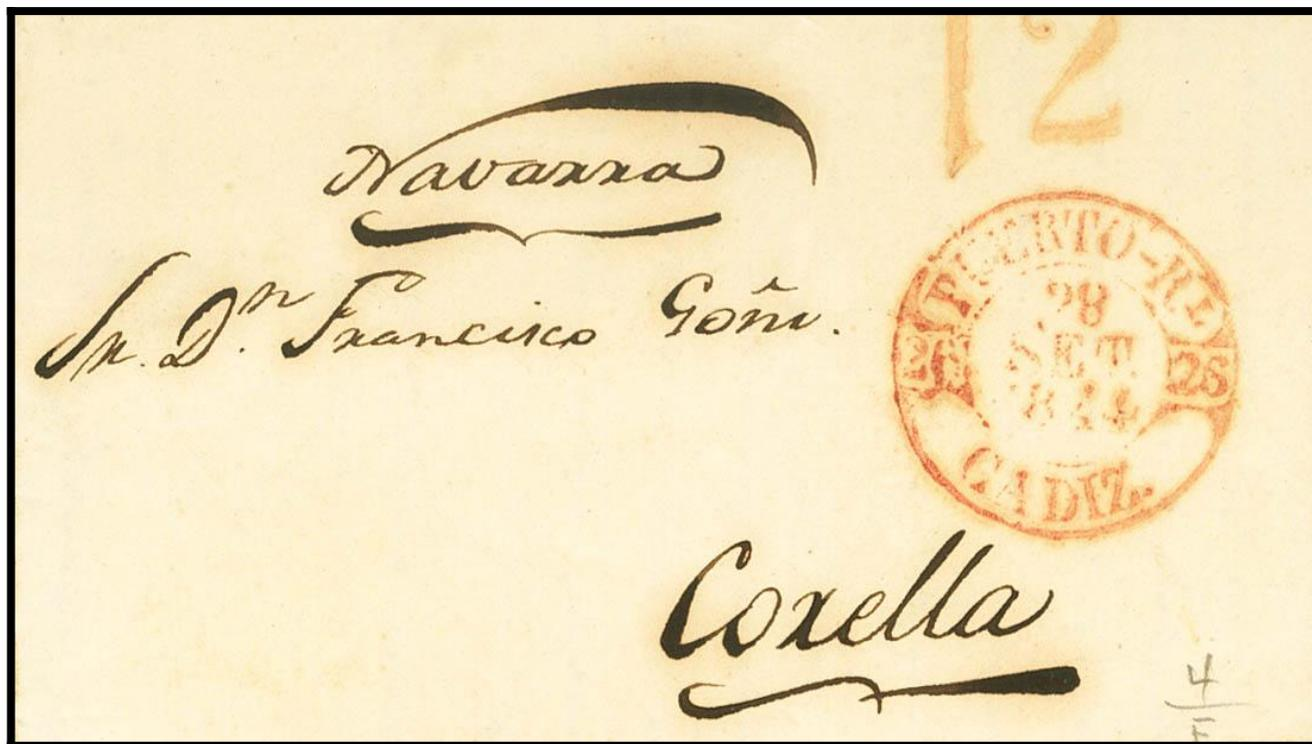 12
Navarra
Sr. Dn. Francisco Goñi.
PUERTO-RL.
28
SET.
1844
25 25
CADIZ.
Corella
4